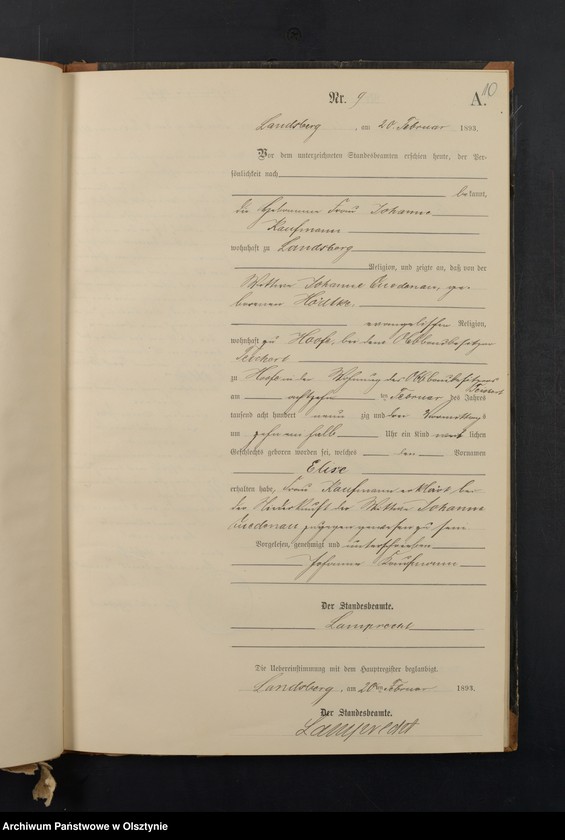 10
Nr. 9 A.
Landsberg, am 20 Februar 1893.
Vor dem unterzeichneten Standesbeamten erschien heute, der Per-
sönlichkeit nach
bekannt,
die Hebamme Frau Johanne
Kaufmann
wohnhaft zu Landsberg
Religion, und zeigte an, daß von der
Wittwe Johanne Quedenau, ge-
borenen
evangelischer Religion,
wohnhaft zu Hoofe, bei dem Abbaubesitzer
zu Hoofe in der Wohnung des Abbaubesitzers
am achtzehn ten Februar des Jahres
tausend acht hundert neun zig und drei Vormittags
um zehn ein halb Uhr ein Kind weib lichen
Geschlechts geboren worden sei, welches den Vornamen
Elise
erhalten habe, Frau Kaufmann erklärt, bei
der Niederkunft der Wittwe Johanne
Quedenau zugegen gewesen zu sein
Vorgelesen, genehmigt und unterschrieben
Johanne Kaufmann
Der Standesbeamte.
Lamprecht
Die Uebereinstimmung mit dem Hauptregister beglaubigt.
Landsberg, am 20ten Februar 1893.
Der Standesbeamte.
Lamprecht
Archiwum Państwowe w Olsztynie